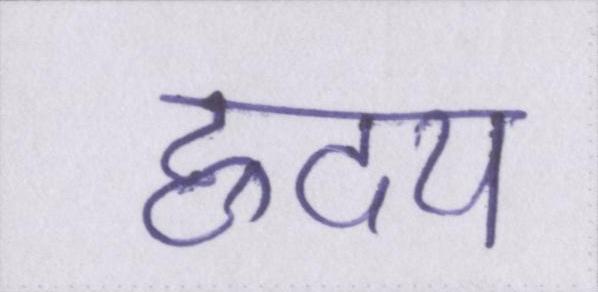 हृदय